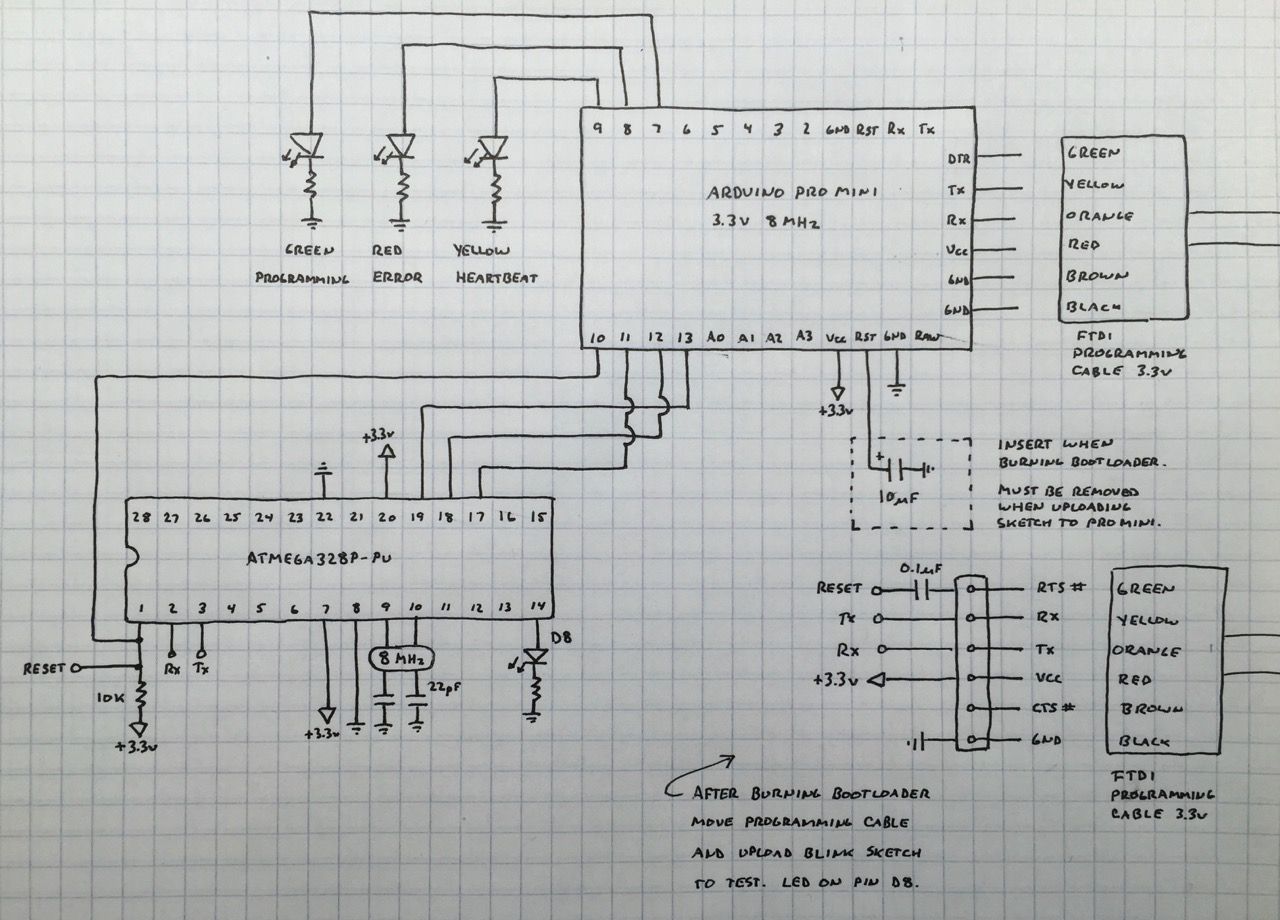 9 8 7 6 5 4 3 2 GND RST Rx Tx
DTR
Tx
Rx
Vcc
GND
GND
ARDUINO PRO MINI
3.3V 8 MHz
10 11 12 13 A0 A1 A2 A3 Vcc RST GND RAW
GREEN
YELLOW
ORANGE
RED
BROWN
BLACK
FTDI
PROGRAMMING
CABLE 3.3V
GREEN
PROGRAMMING
RED
ERROR
YELLOW
HEARTBEAT
+3.3V
+
10µF
INSERT WHEN
BURNING BOOTLOADER.
MUST BE REMOVED
WHEN UPLOADING
SKETCH TO PRO MINI.
+3.3V
28 27 26 25 24 23 22 21 20 19 18 17 16 15
ATMEGA328P-PU
1 2 3 4 5 6 7 8 9 10 11 12 13 14
RESET
10K
+3.3V
Rx
Tx
+3.3V
8 MHz
22pF
D8
0.1µF
RESET
Tx
Rx
+3.3V
RTS#
Rx
Tx
VCC
CTS#
GND
GREEN
YELLOW
ORANGE
RED
BROWN
BLACK
FTDI
PROGRAMMING
CABLE 3.3V
AFTER BURNING BOOTLOADER
MOVE PROGRAMMING CABLE
AND UPLOAD BLINK SKETCH
TO TEST. LED ON PIN D8.